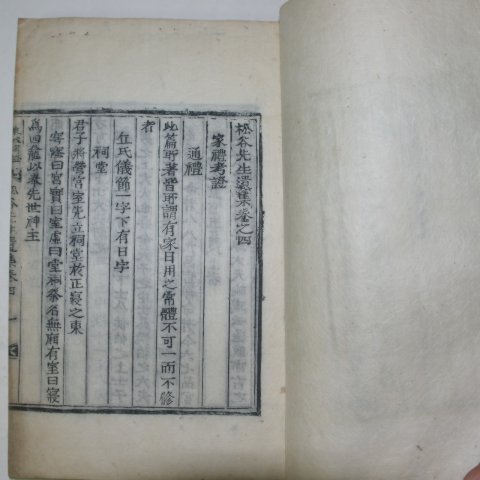 松谷先生遺集卷之四
家禮考證
通禮
此篇所著皆所謂有家日用之常體不可一而不修
者
丘氏儀節一字下有日字
祠堂
君子將營宮室先立祠堂於正寢之東
曰宮寶曰室虛曰堂祠祭名無廂有室曰寢
爲四龕以奉先世神主